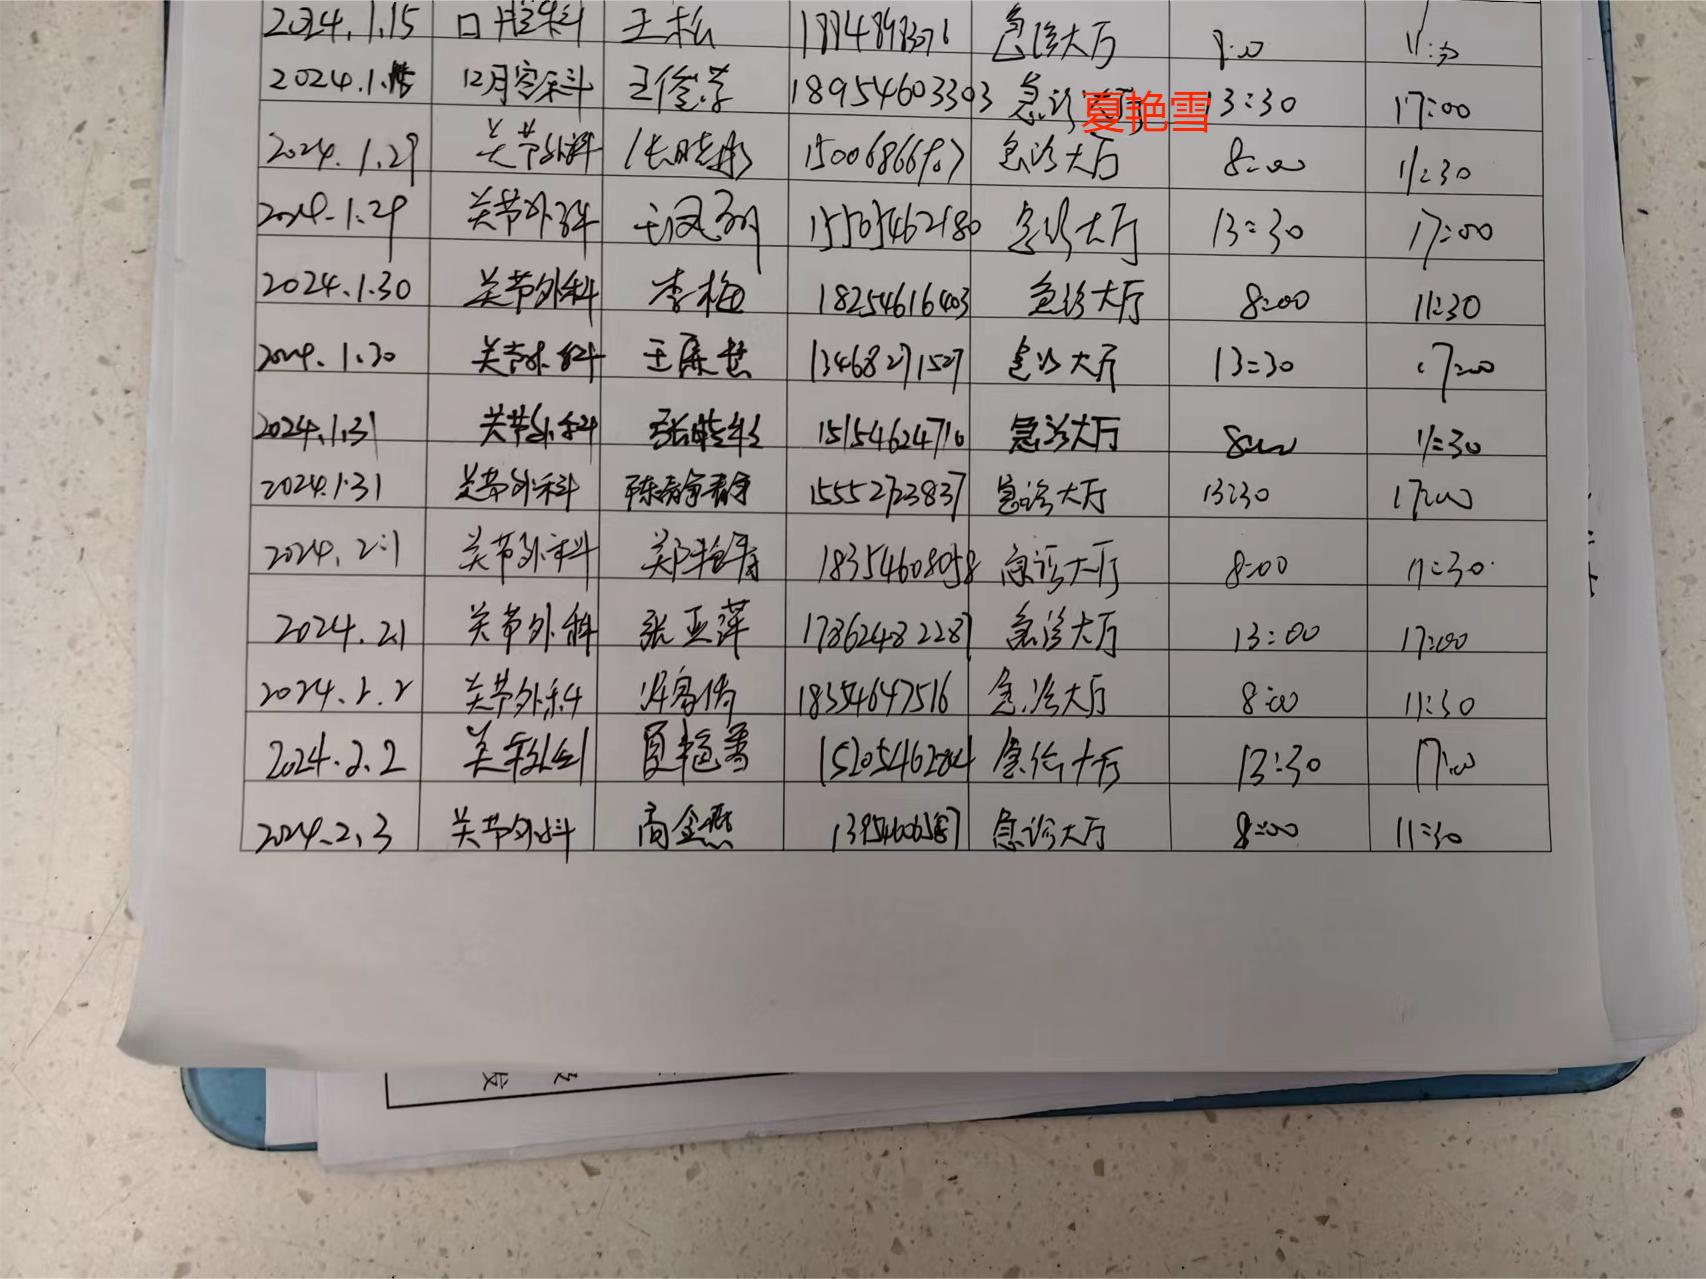 2024.1.15 口腔科 王松 急诊大厅 8:00 11:30
2024.1.15 口腔科 18954603303 急诊大厅 13:30 17:00
夏艳雪
2024.1.29 关节外科 15006866987 急诊大厅 8:00 11:30
2024.1.29 关节外科 15505462180 急诊大厅 13:30 17:00
2024.1.30 关节外科 李梅 18254616403 急诊大厅 8:00 11:30
2024.1.30 关节外科 13468271527 急诊大厅 13:30 17:00
2024.1.31 关节外科 15154624710 急诊大厅 8:00 11:30
2024.1.31 关节外科 陈静静 15552723837 急诊大厅 13:30 17:00
2024.2.1 关节外科 18354608058 急诊大厅 8:00 11:30
2024.2.1 关节外科 张亚萍 17862482287 急诊大厅 13:00 17:00
2024.2.2 关节外科 18354647516 急诊大厅 8:00 11:30
2024.2.2 关节外科 夏艳雪 急诊大厅 13:30 17:00
2024.2.3 关节外科 商金燕 急诊大厅 8:00 11:30